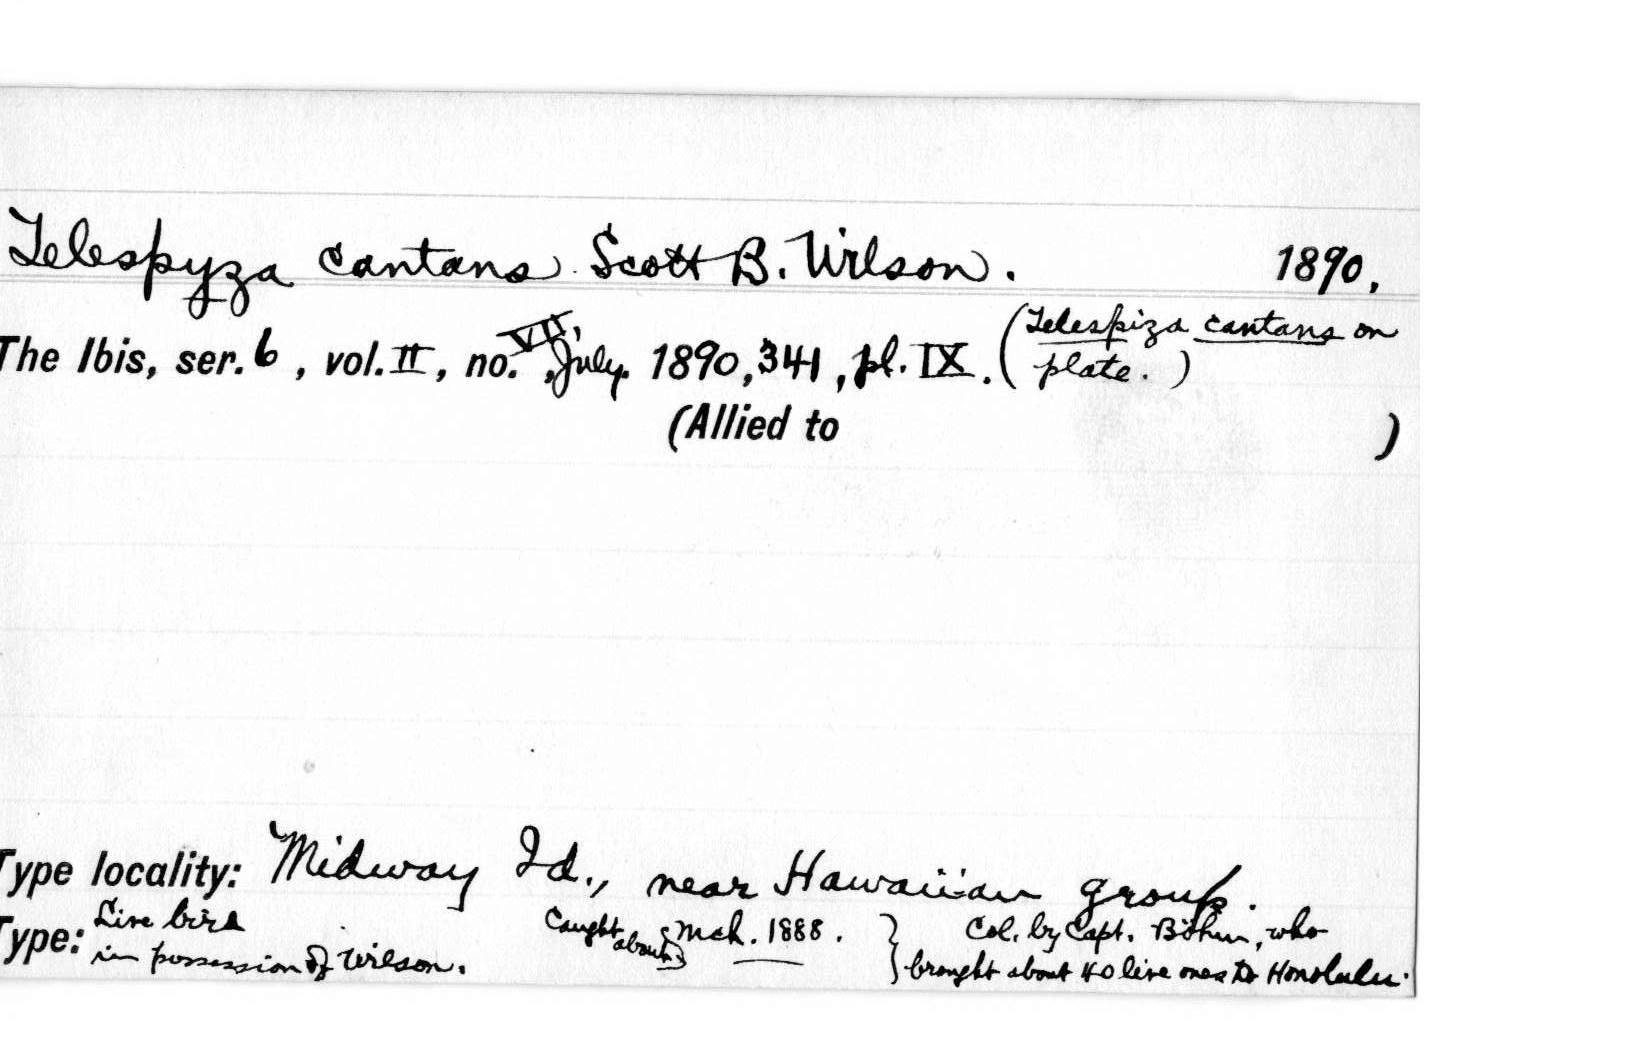 Telespyza cantans Scott B. Wilson. 1890.
The Ibis, ser. 6, vol. II, no. VII, July. 1890, 341, pl. IX. (Telespiza cantans on
plate.)
(Allied to )
Type locality: Midway Id., near Hawaiian group.
Type: Live bird
in possession of Wilson.
Caught about Mch. 1888.
Col. by Capt. Böhm, who
brought about 40 live ones to Honolulu.